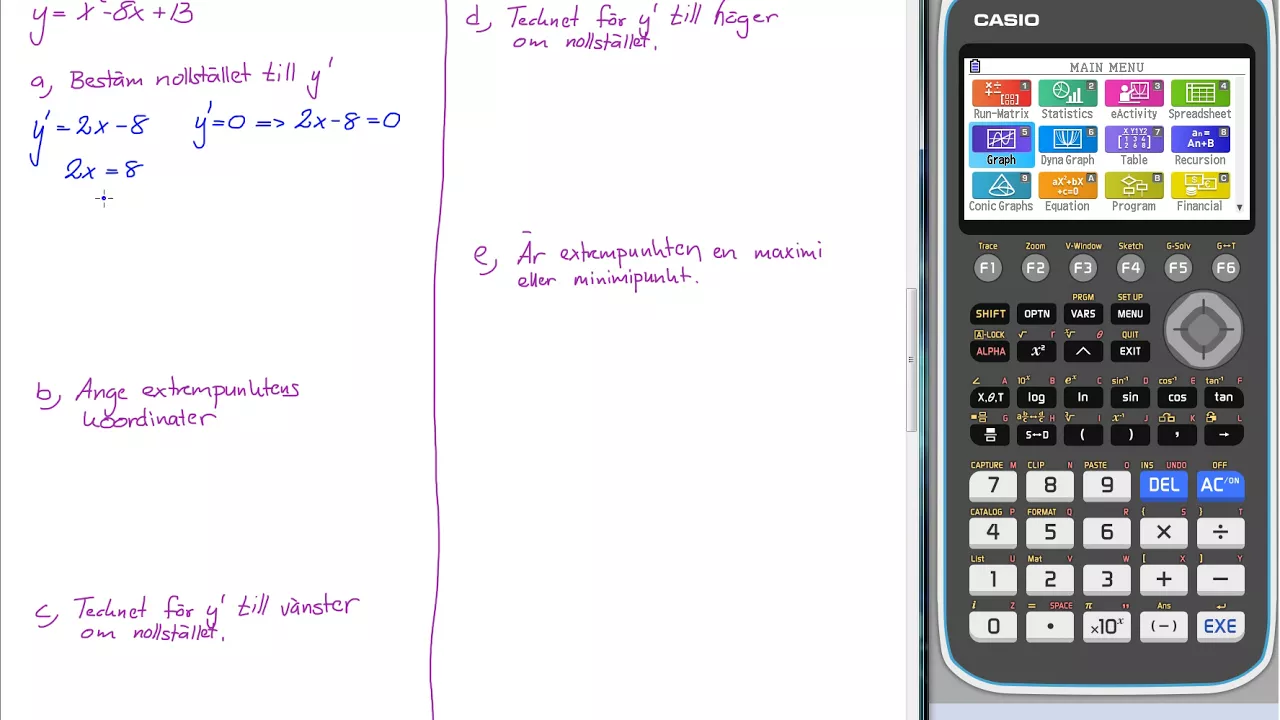 y = x²-8x+13
a, Bestäm nollstället till y'
y' = 2x-8 y'=0 => 2x-8=0
2x = 8
b, Ange extrempunktens
koordinater
c, Tecknet för y' till vänster
om nollstället.
d, Tecknet för y' till höger
om nollstället.
e, Är extrempunkten en maximi
eller minimipunkt.
CASIO
MAIN MENU
Run-Matrix Statistics eActivity Spreadsheet
Graph Dyna Graph Table Recursion
Conic Graphs Equation Program Financial
Trace Zoom V-Window Sketch G-Solv G↔T
F1 F2 F3 F4 F5 F6
PRGM SET UP
SHIFT OPTN VARS MENU
A-LOCK √ r ˣ√ θ QUIT
ALPHA x² ^ EXIT
∠ A 10ˣ B eˣ C sin⁻¹ D cos⁻¹ E tan⁻¹ F
X,θ,T log ln sin cos tan
G H ³√ I x⁻¹ J K L
S↔D ( ) , →
CAPTURE M CLIP N PASTE O INS UNDO OFF
7 8 9 DEL AC/ON
CATALOG P FORMAT Q R { S } T
4 5 6 × ÷
List U Mat V W [ X ] Y
1 2 3 + −
i Z = SPACE π " Ans ↵
0 • ×10ˣ (−) EXE